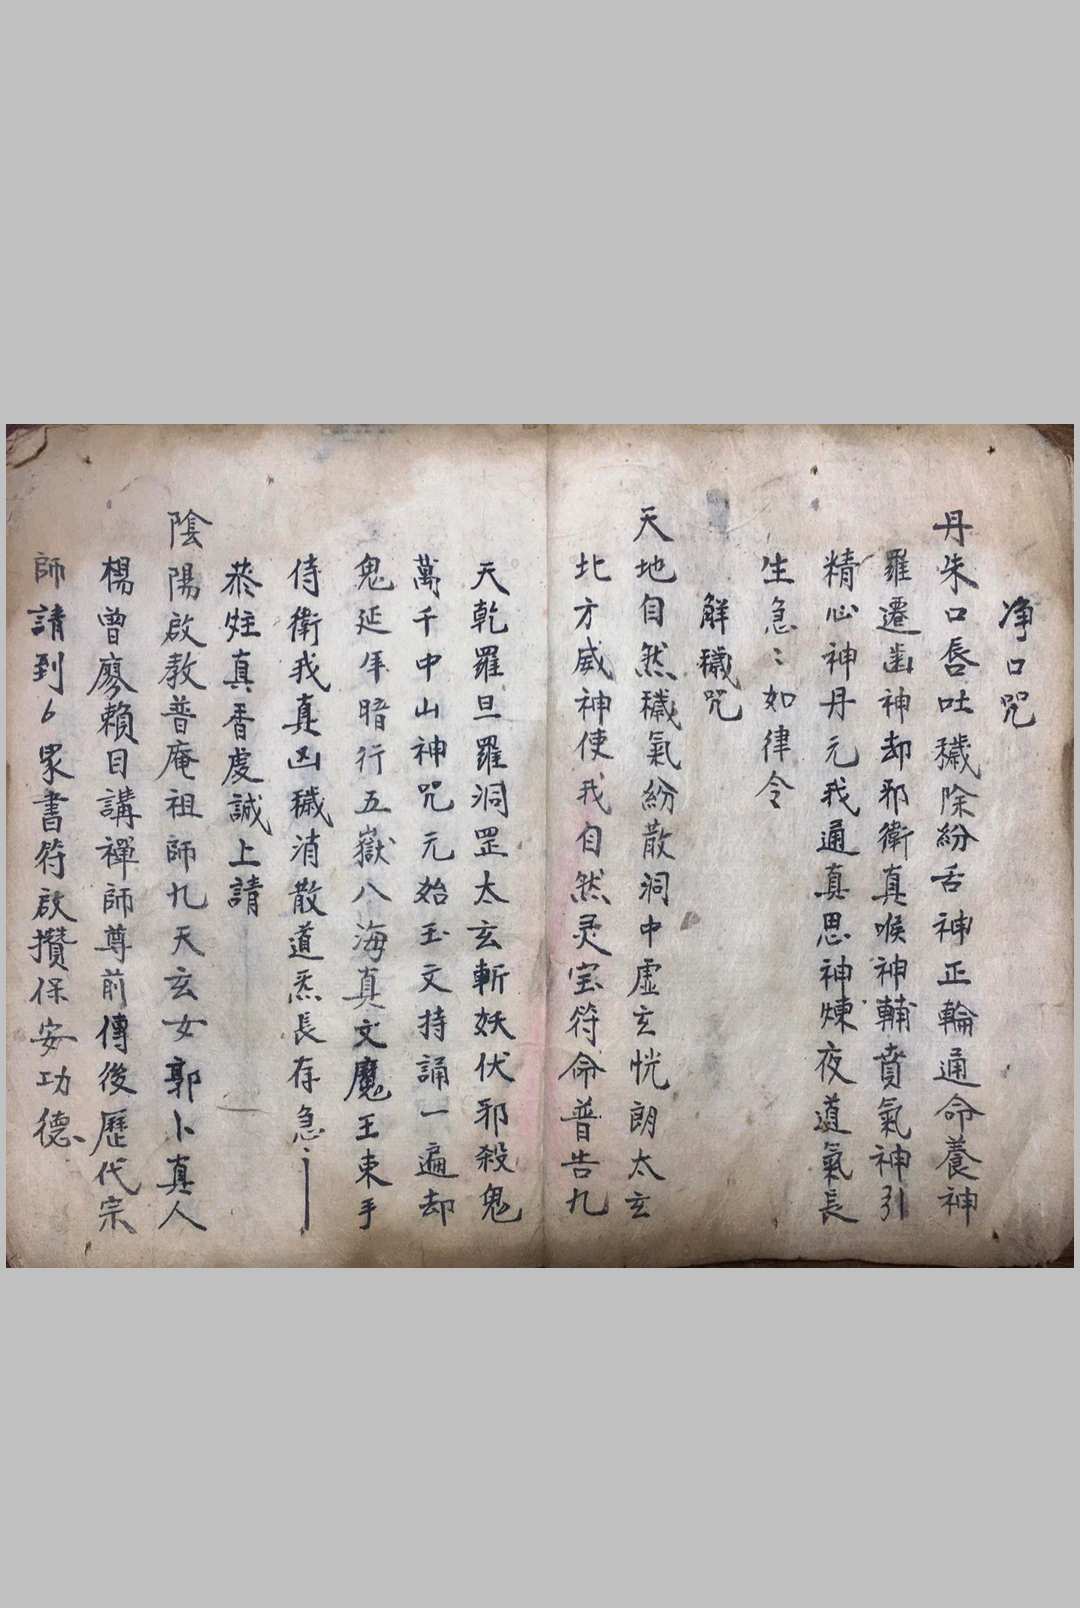 净口咒
丹朱口唇吐穢除紛舌神正輪通命養神
羅遷齒神却邪衛真喉神輔賁氣神引
精心神丹元我通真思神煉夜道氣長
生急:如律令
解穢咒
天地自然穢氣紛散洞中虛玄恍朗太玄
北方威神使我自然灵宝符命普告九
天乾羅旦羅洞罡太玄斬妖伏邪殺鬼
萬千中山神咒元始玉文持誦一遍却
鬼延年暗行五嶽八海真文魔王束手
侍衛我真凶穢消散道炁長存急:
恭炷真香虔誠上請
陰陽啟教普庵祖師九天玄女郭卜真人
楊曾廖賴目講禪師尊前傳後歷代宗
師請到書符啟攢保安功德